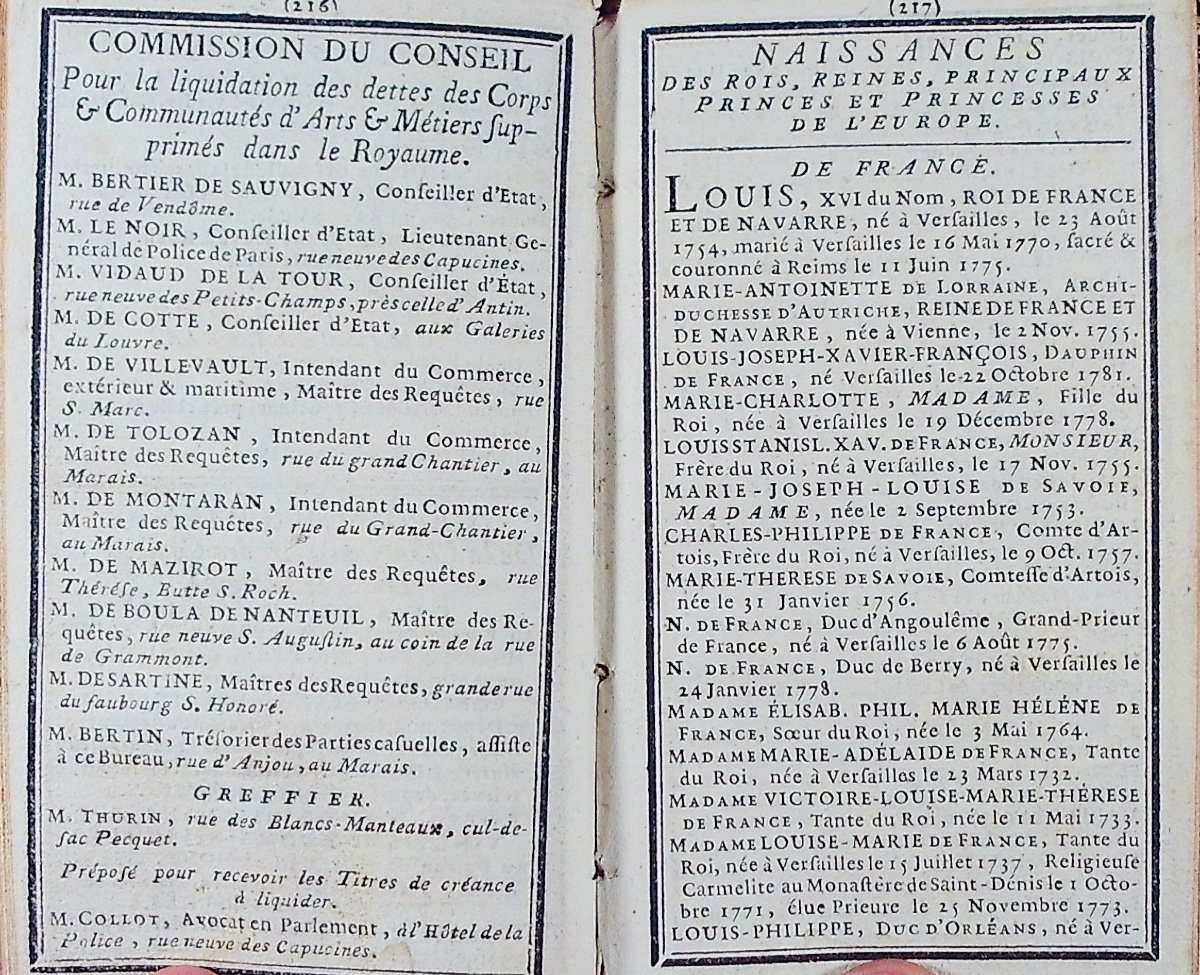 (216)
COMMISSION DU CONSEIL
Pour la liquidation des dettes des Corps
& Communautés d'Arts & Métiers ſup-
primés dans le Royaume.
M. BERTIER DE SAUVIGNY, Conſeiller d'Etat,
rue de Vendôme.
M. LE NOIR, Conſeiller d'Etat, Lieutenant Gé-
néral de Police de Paris, rue neuve des Capucines.
M. VIDAUD DE LA TOUR, Conſeiller d'État,
rue neuve des Petits-Champs, près celle d'Antin.
M. DE COTTE, Conſeiller d'Etat, aux Galeries
du Louvre.
M. DE VILLEVAULT, Intendant du Commerce,
extérieur & maritime, Maître des Requêtes, rue
S. Marc.
M. DE TOLOZAN, Intendant du Commerce,
Maître des Requêtes, rue du grand Chantier, au
Marais.
M. DE MONTARAN, Intendant du Commerce,
Maître des Requêtes, rue du Grand-Chantier,
au Marais.
M. DE MAZIROT, Maître des Requêtes, rue
Théréſe, Butte S. Roch.
M. DE BOULA DE NANTEUIL, Maître des Re-
quêtes, rue neuve S. Auguſtin, au coin de la rue
de Grammont.
M. DESARTINE, Maîtres des Requêtes, grande rue
du faubourg S. Honoré.
M. BERTIN, Tréſorier des Parties caſuelles, aſſiſte
à ce Bureau, rue d'Anjou, au Marais.
GREFFIER.
M. THURIN, rue des Blancs-Manteaux, cul-de-
ſac Pecquet.
Prépoſé pour recevoir les Titres de créance
à liquider.
M. COLLOT, Avocat en Parlement, à l'Hôtel de la
Police, rue neuve des Capucines.
(217)
NAISSANCES
DES ROIS, REINES, PRINCIPAUX
PRINCES ET PRINCESSES
DE L'EUROPE.
DE FRANCE.
LOUIS, XVI du Nom, ROI DE FRANCE
ET DE NAVARRE, né à Verſailles, le 23 Août
1754, marié à Verſailles le 16 Mai 1770, ſacré &
couronné à Reims le 11 Juin 1775.
MARIE-ANTOINETTE DE LORRAINE, ARCHI-
DUCHESSE D'AUTRICHE, REINE DE FRANCE ET
DE NAVARRE, née à Vienne, le 2 Nov. 1755.
LOUIS-JOSEPH-XAVIER-FRANÇOIS, DAUPHIN
DE FRANCE, né Verſailles le 22 Octobre 1781.
MARIE-CHARLOTTE, MADAME, Fille du
Roi, née à Verſailles le 19 Décembre 1778.
LOUIS STANISL. XAV. DE FRANCE, MONSIEUR,
Frère du Roi, né à Verſailles, le 17 Nov. 1755.
MARIE-JOSEPH-LOUISE DE SAVOIE,
MADAME, née le 2 Septembre 1753.
CHARLES-PHILIPPE DE FRANCE, Comte d'Ar-
tois, Frère du Roi, né à Verſailles, le 9 Oct. 1757.
MARIE-THERESE DE SAVOIE, Comteſſe d'Artois,
née le 31 Janvier 1756.
N. DE FRANCE, Duc d'Angoulême, Grand-Prieur
de France, né à Verſailles le 6 Août 1775.
N. DE FRANCE, Duc de Berry, né à Verſailles le
24 Janvier 1778.
MADAME ÉLISAB. PHIL. MARIE HÉLÉNE DE
FRANCE, Sœur du Roi, née le 3 Mai 1764.
MADAME MARIE-ADÉLAIDE DE FRANCE, Tante
du Roi, née à Verſailles le 23 Mars 1732.
MADAME VICTOIRE-LOUISE-MARIE-THÉRESE
DE FRANCE, Tante du Roi, née le 11 Mai 1733.
MADAME LOUISE-MARIE DE FRANCE, Tante du
Roi, née à Verſailles le 15 Juillet 1737, Religieuſe
Carmelite au Monaſtère de Saint-Denis le 1 Octo-
bre 1771, élue Prieure le 25 Novembre 1773.
LOUIS-PHILIPPE, DUC D'ORLÉANS, né à Ver-